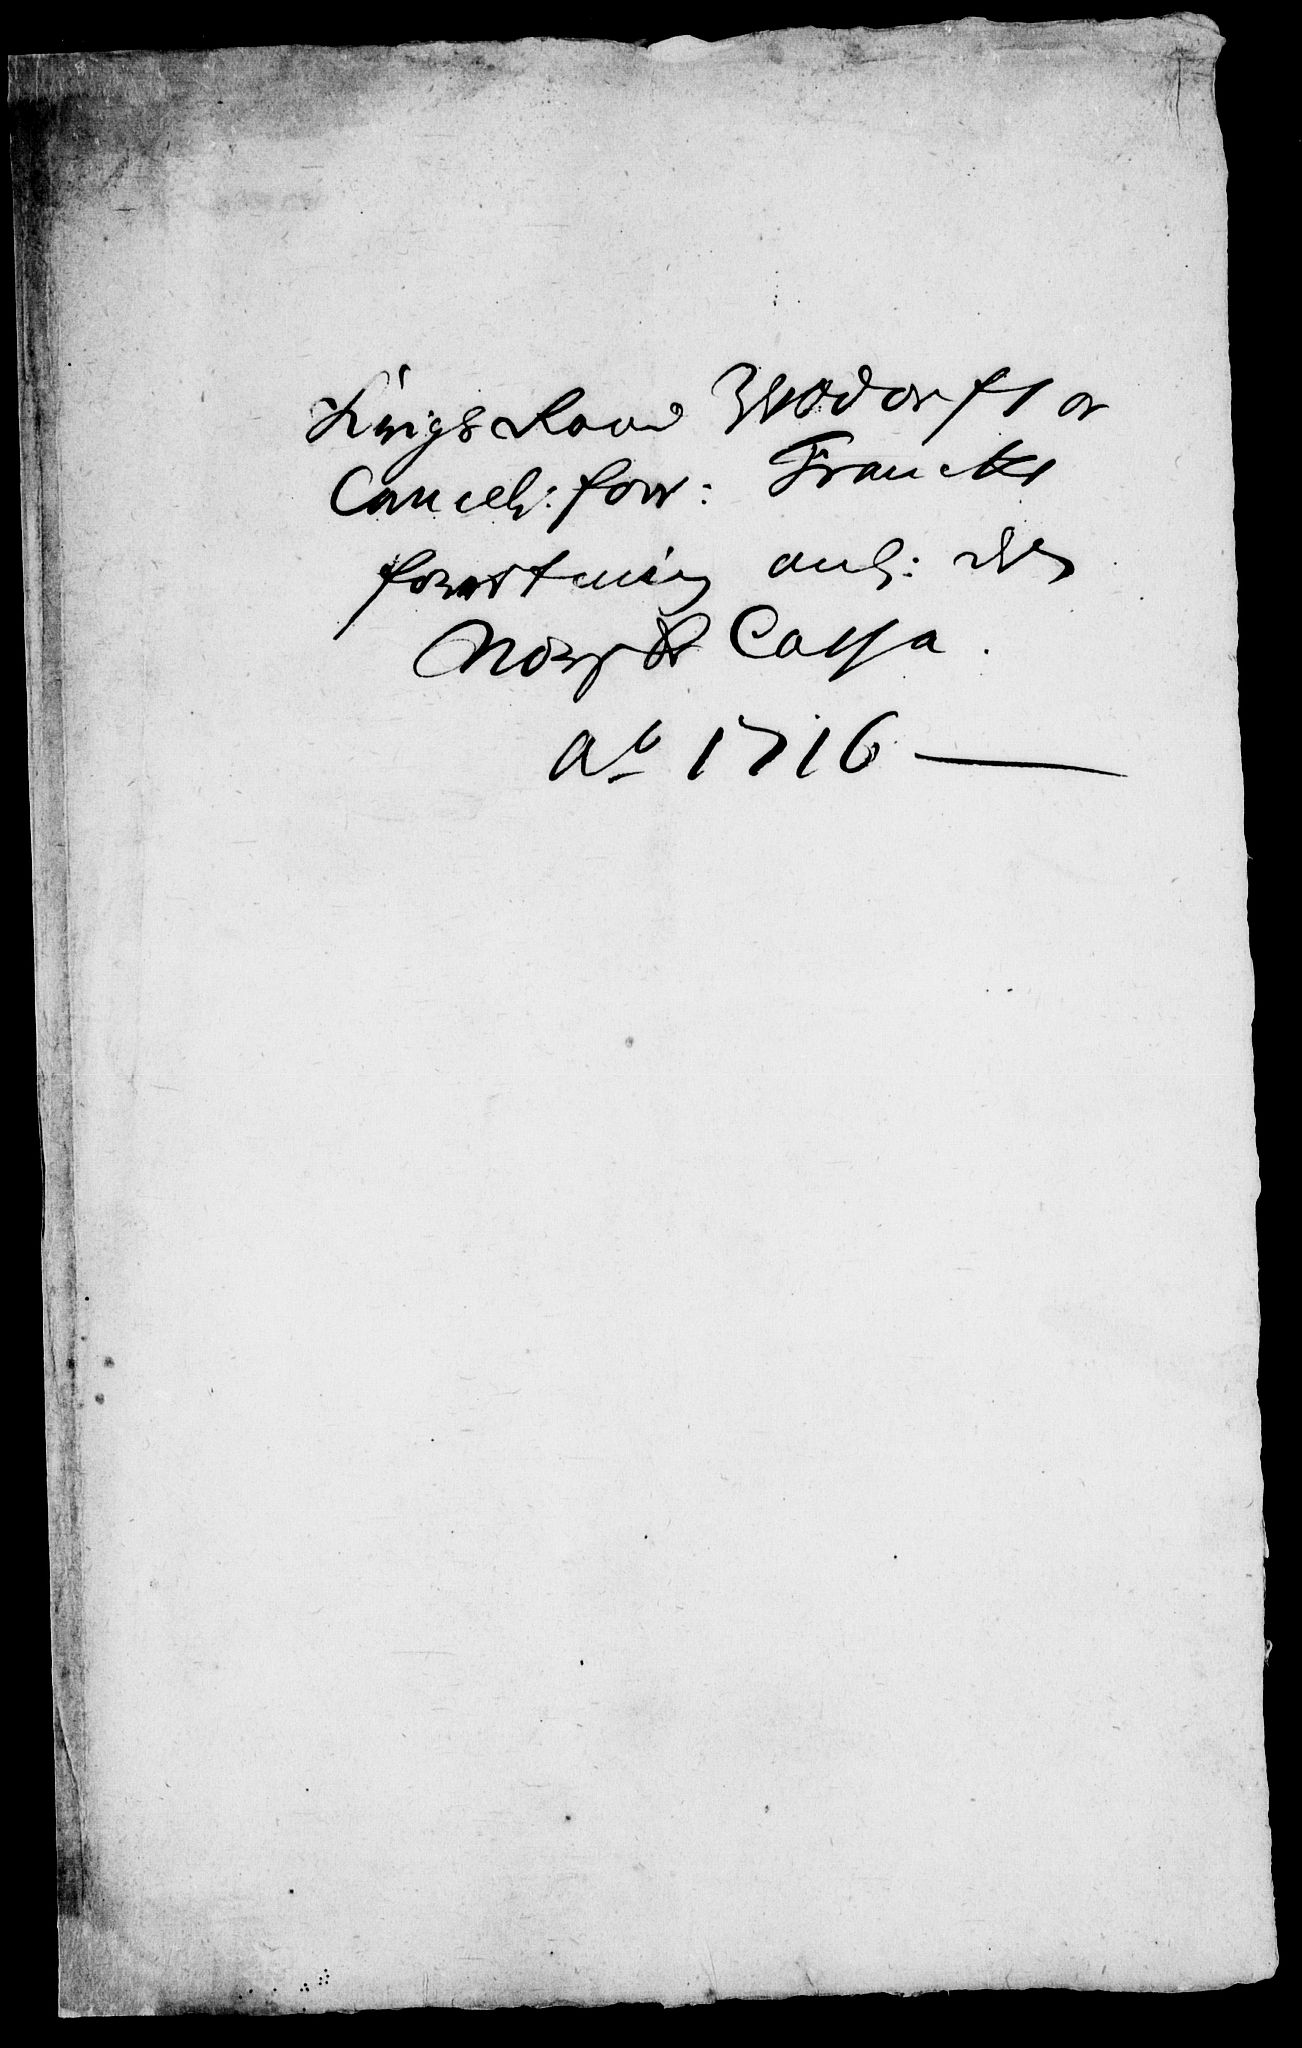 Krigs Raad Zeedorfs og
Cancell: forv: Francks
forretning anl: den
Norske Cassa.
Aō 1716